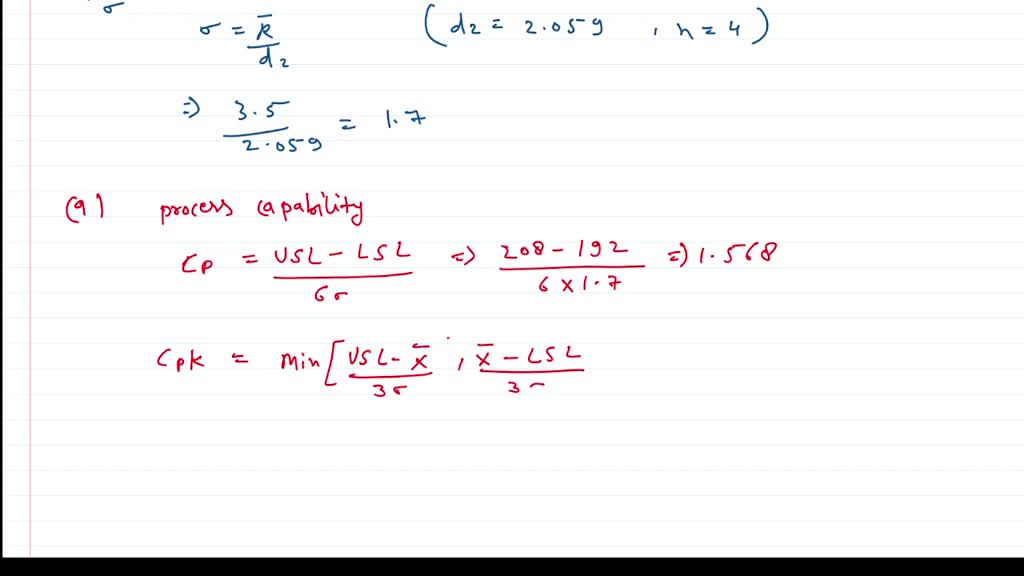 σ
σ = R̅ / d2 (d2 = 2.059 , n = 4)
=) 3.5 / 2.059 = 1.7
(a) process capability
Cp = USL - LSL / 6σ =) 208 - 192 / 6 x 1.7 =) 1.568
Cpk = Min [ USL - X̅ / 3σ , X̅ - LSL / 3σ